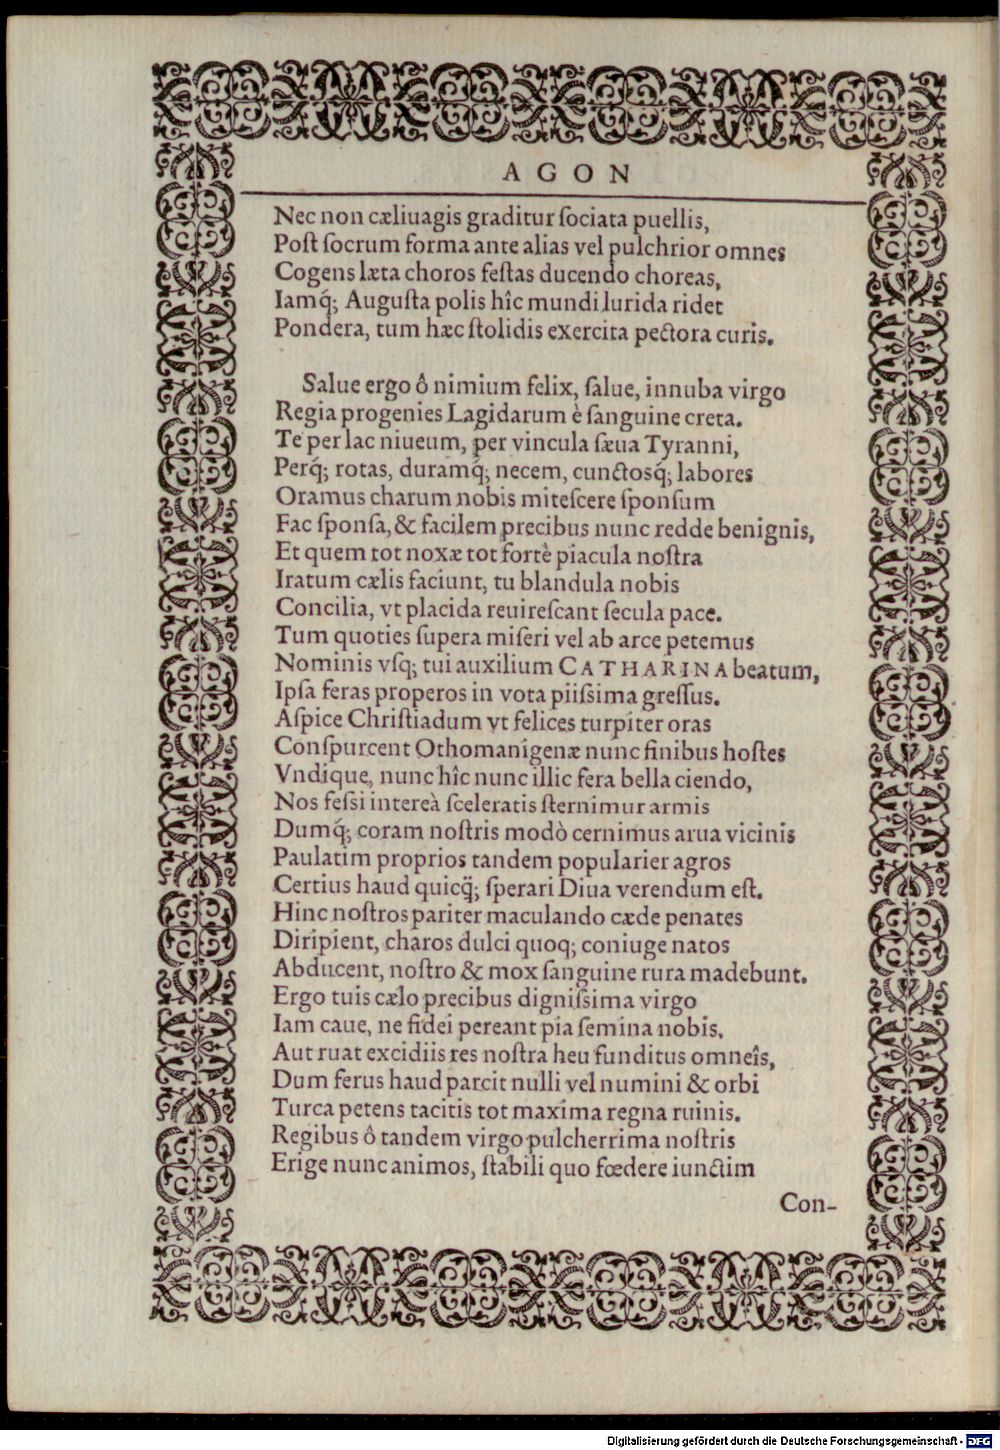 AGON
Nec non cæliuagis graditur ſociata puellis,
Poſt ſocrum forma ante alias vel pulchrior omnes
Cogens læta choros feſtas ducendo choreas,
Iamq́; Auguſta polis hîc mundi lurida ridet
Pondera, tum hæc ſtolidis exercita pectora curis.
Salue ergo ô nimium felix, ſalue, innuba virgo
Regia progenies Lagidarum è ſanguine creta.
Te per lac niueum, per vincula ſæua Tyranni,
Perq́; rotas, duramq́; necem, cunctosq́; labores
Oramus charum nobis miteſcere ſponſum
Fac ſponſa, & facilem precibus nunc redde benignis,
Et quem tot noxæ tot fortè piacula noſtra
Iratum cælis faciunt, tu blandula nobis
Concilia, vt placida reuireſcant ſecula pace.
Tum quoties ſupera miſeri vel ab arce petemus
Nominis vſq; tui auxilium CATHARINA beatum,
Ipſa feras properos in vota piiſsima greſſus.
Aſpice Chriſtiadum vt felices turpiter oras
Conſpurcent Othomanigenæ nunc finibus hoſtes
Vndique, nunc hîc nunc illic fera bella ciendo,
Nos feſsi intereà ſceleratis ſternimur armis
Dumq́; coram noſtris modò cernimus arua vicinis
Paulatim proprios tandem popularier agros
Certius haud quicq̈; ſperari Diua verendum eſt.
Hinc noſtros pariter maculando cæde penates
Diripient, charos dulci quoq; coniuge natos
Abducent, noſtro & mox ſanguine rura madebunt.
Ergo tuis cælo precibus digniſsima virgo
Iam caue, ne fidei pereant pia ſemina nobis.
Aut ruat excidiis res noſtra heu funditus omneîs,
Dum ferus haud parcit nulli vel numini & orbi
Turca petens tacitis tot maxima regna ruinis.
Regibus ô tandem virgo pulcherrima noſtris
Erige nunc animos, ſtabili quo fœdere iunctim
Con-
Digitalisierung gefördert durch die Deutsche Forschungsgemeinschaft - DFG